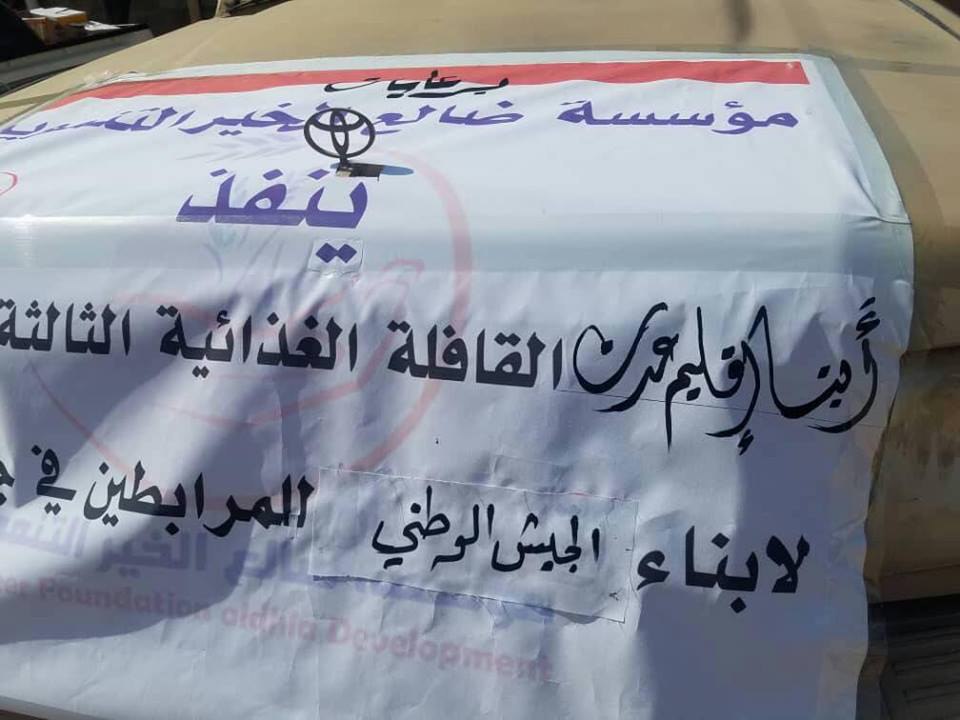 برعاية
مؤسسة ضالع الخير التنموية
ينفذ
أبناء إقليم عدن القافلة الغذائية الثالثة
لابناء الجيش الوطني للمرابطين في
ضالع الخير
Foundation aldhla Development